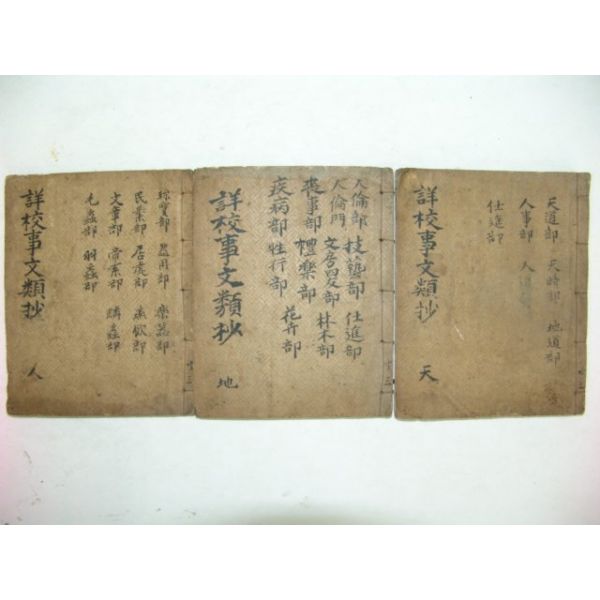 天道部 天時部 地道部
人事部 人
仕進部
詳校事文類抄 天
人倫部 技藝部 仕進部
人倫門 文房四友部 林木部
喪事部 禮樂部
疾病部 性行部 花卉部
詳校事文類抄 地
珍寶部 器用部 樂器部
民業部 居處部 燕飮部
文章部 帝系部 鱗蟲部
毛蟲部 羽蟲部
詳校事文類抄 人